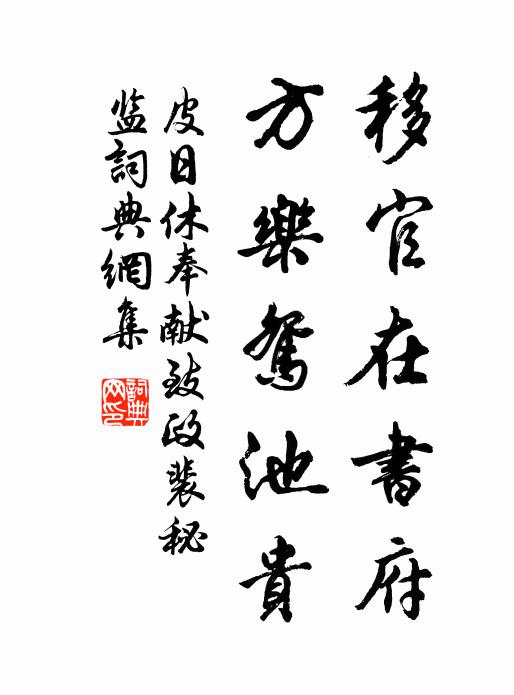 移官在書府
方樂鴛池貴
皮日休奉献致政裴秘
监詞典網集
詞典
网印